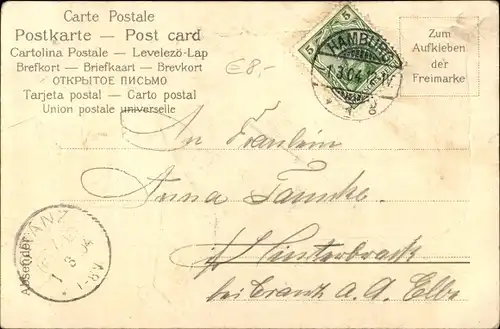 Carte Postale
Postkarte — Post card
Cartolina Postale — Levelezö-Lap
Brefkort — Briefkaart — Brevkort
ОТКРЫТОЕ ПИСЬМО
Tarjeta postal — Carto postal
Union postale universelle
€8,-
5 5
HAMBURG
1.3.04
1 8
Zum
Aufkleben
der
Freimarke
An Fräulein
Anna
Hinterbrack
bei Cranz a. d. Elbe
Absender
CRANZ